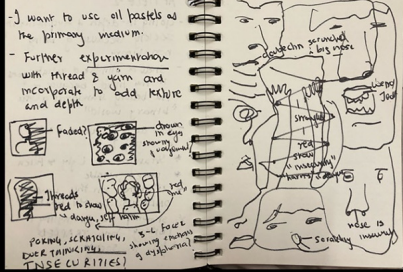 - I want to use oil pastels as
the primary medium.
- Further experimentation
with thread & yarn and
incorporate to add texture
and depth
Faded?
drawn
in eyes
showing
Threads
red to show
danger, self harm
red
3-4 faces
showing emotions
of dysphoria?
POKING, SCRATCHING,
OVERTHINKING,
INSECURITIES?
double chin
scrunched
big nose
weird
smaller
red
show
"insecurity"
nose is
insecure
scratchy